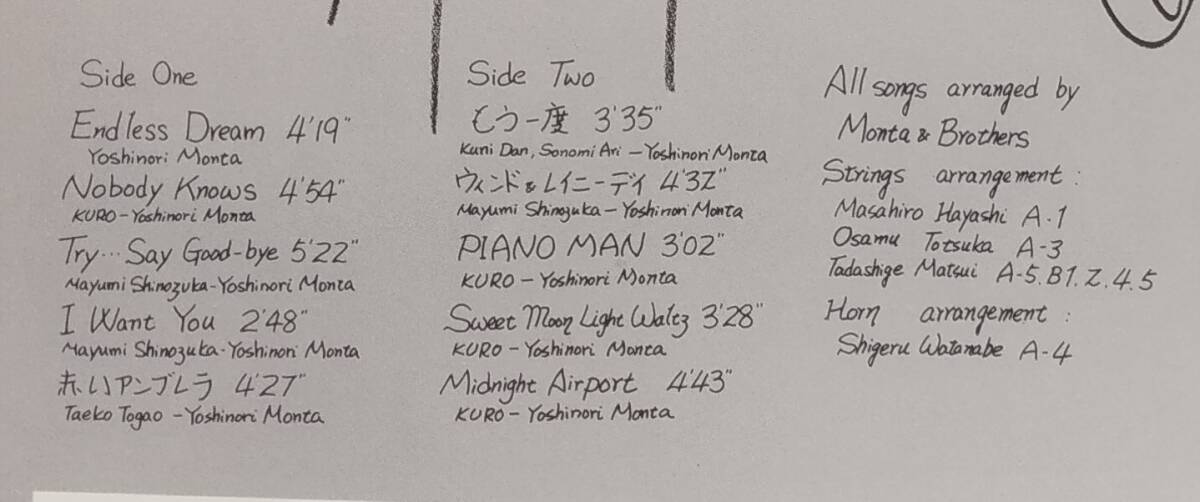 Side One
Endless Dream 4'19"
Yoshinori Monta
Nobody Knows 4'54"
KURO-Yoshinori Monta
Try...Say Good-bye 5'22"
Mayumi Shinozuka-Yoshinori Monta
I Want You 2'48"
Mayumi Shinozuka-Yoshinori Monta
赤いアンブレラ 4'27"
Taeko Togao-Yoshinori Monta
Side Two
もう一度 3'35"
Kuni Dan, Sonomi Ari-Yoshinori Monta
ウィンド&レイニーデイ 4'32"
Mayumi Shinozuka-Yoshinori Monta
PIANO MAN 3'02"
KURO-Yoshinori Monta
Sweet Moon Light Waltz 3'28"
KURO-Yoshinori Monta
Midnight Airport 4'43"
KURO-Yoshinori Monta
All songs arranged by
Monta & Brothers
Strings arrangement:
Masahiro Hayashi A-1
Osamu Totsuka A-3
Tadashige Matsui A-5.B1.2.4.5
Horn arrangement:
Shigeru Watanabe A-4